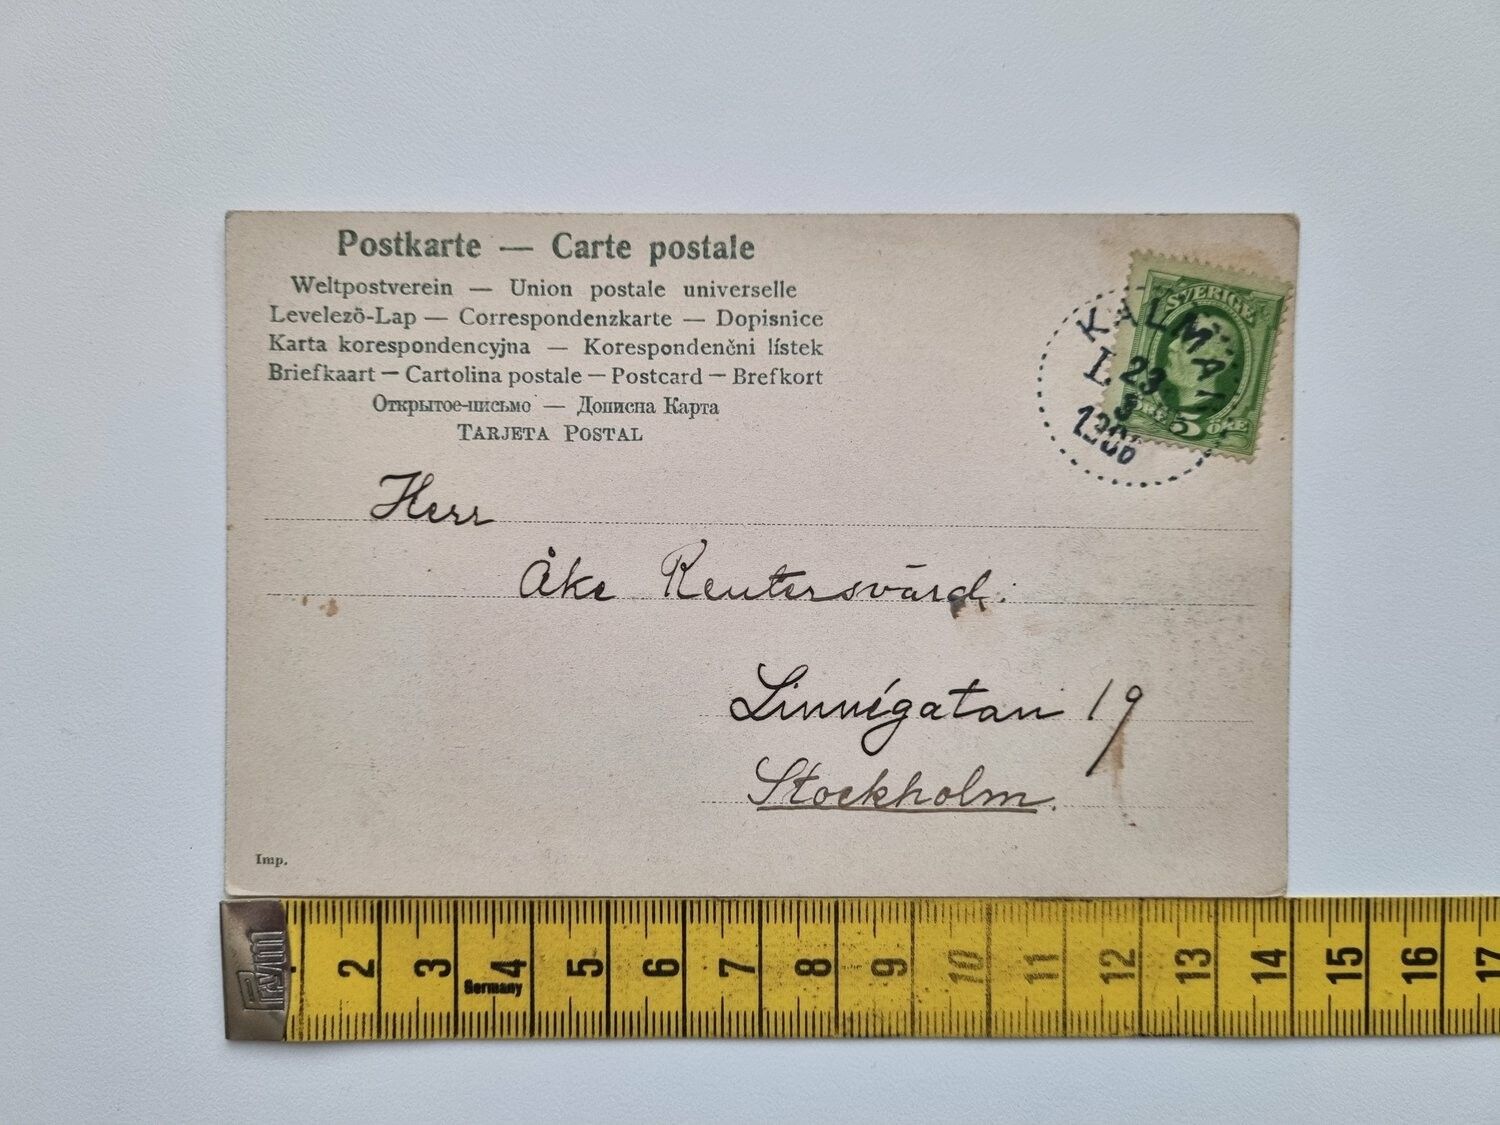 Postkarte — Carte postale
Weltpostverein — Union postale universelle
Levelezö-Lap — Correspondenzkarte — Dopisnice
Karta korespondencyjna — Korespondenčni lístek
Briefkaart — Cartolina postale — Postcard — Brefkort
Открытое-письмо — Дописна Карта
TARJETA POSTAL
SVERIGE
5 ÖRE
KALMAR
1. 23
3
Herr
Åke Reutersvärd.
Linnégatan 19
Stockholm.
Imp.
Prym
2 3 4 5 6 7 8 9 10 11 12 13 14 15 16 17
Germany